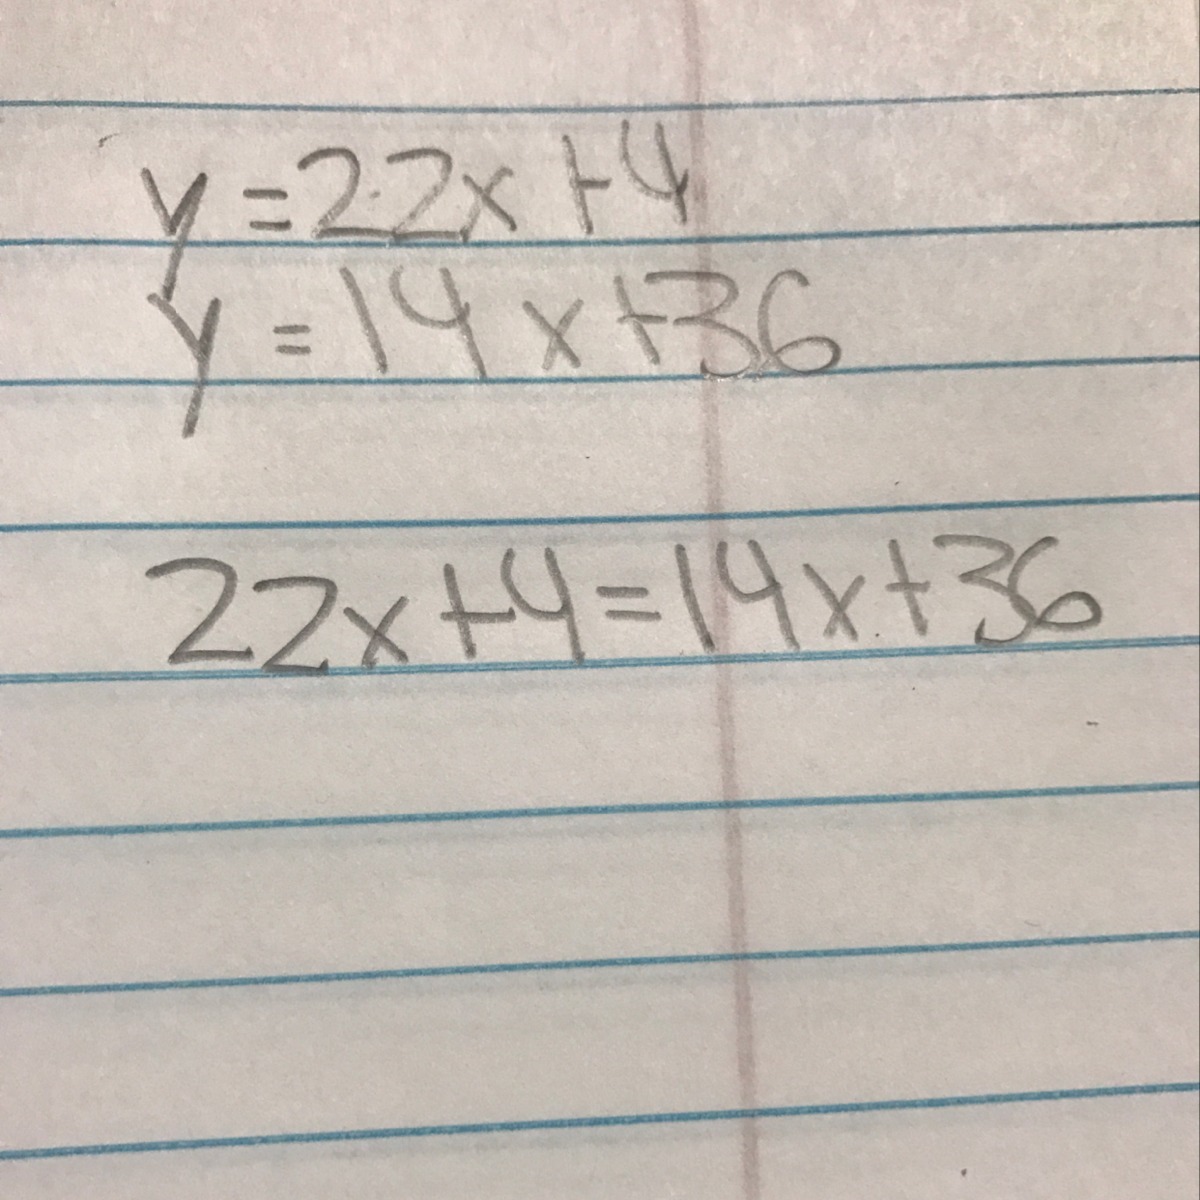 y = 22x + 4
y = 14x + 36
22x + 4 = 14x + 36